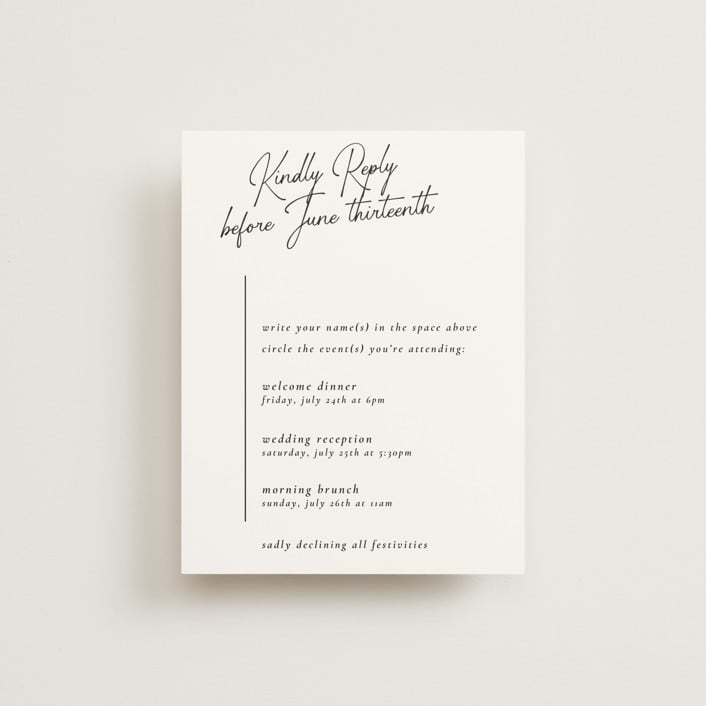 Kindly Reply
before June thirteenth
write your name(s) in the space above
circle the event(s) you're attending:
welcome dinner
friday, july 24th at 6pm
wedding reception
saturday, july 25th at 5:30pm
morning brunch
sunday, july 26th at 11am
sadly declining all festivities